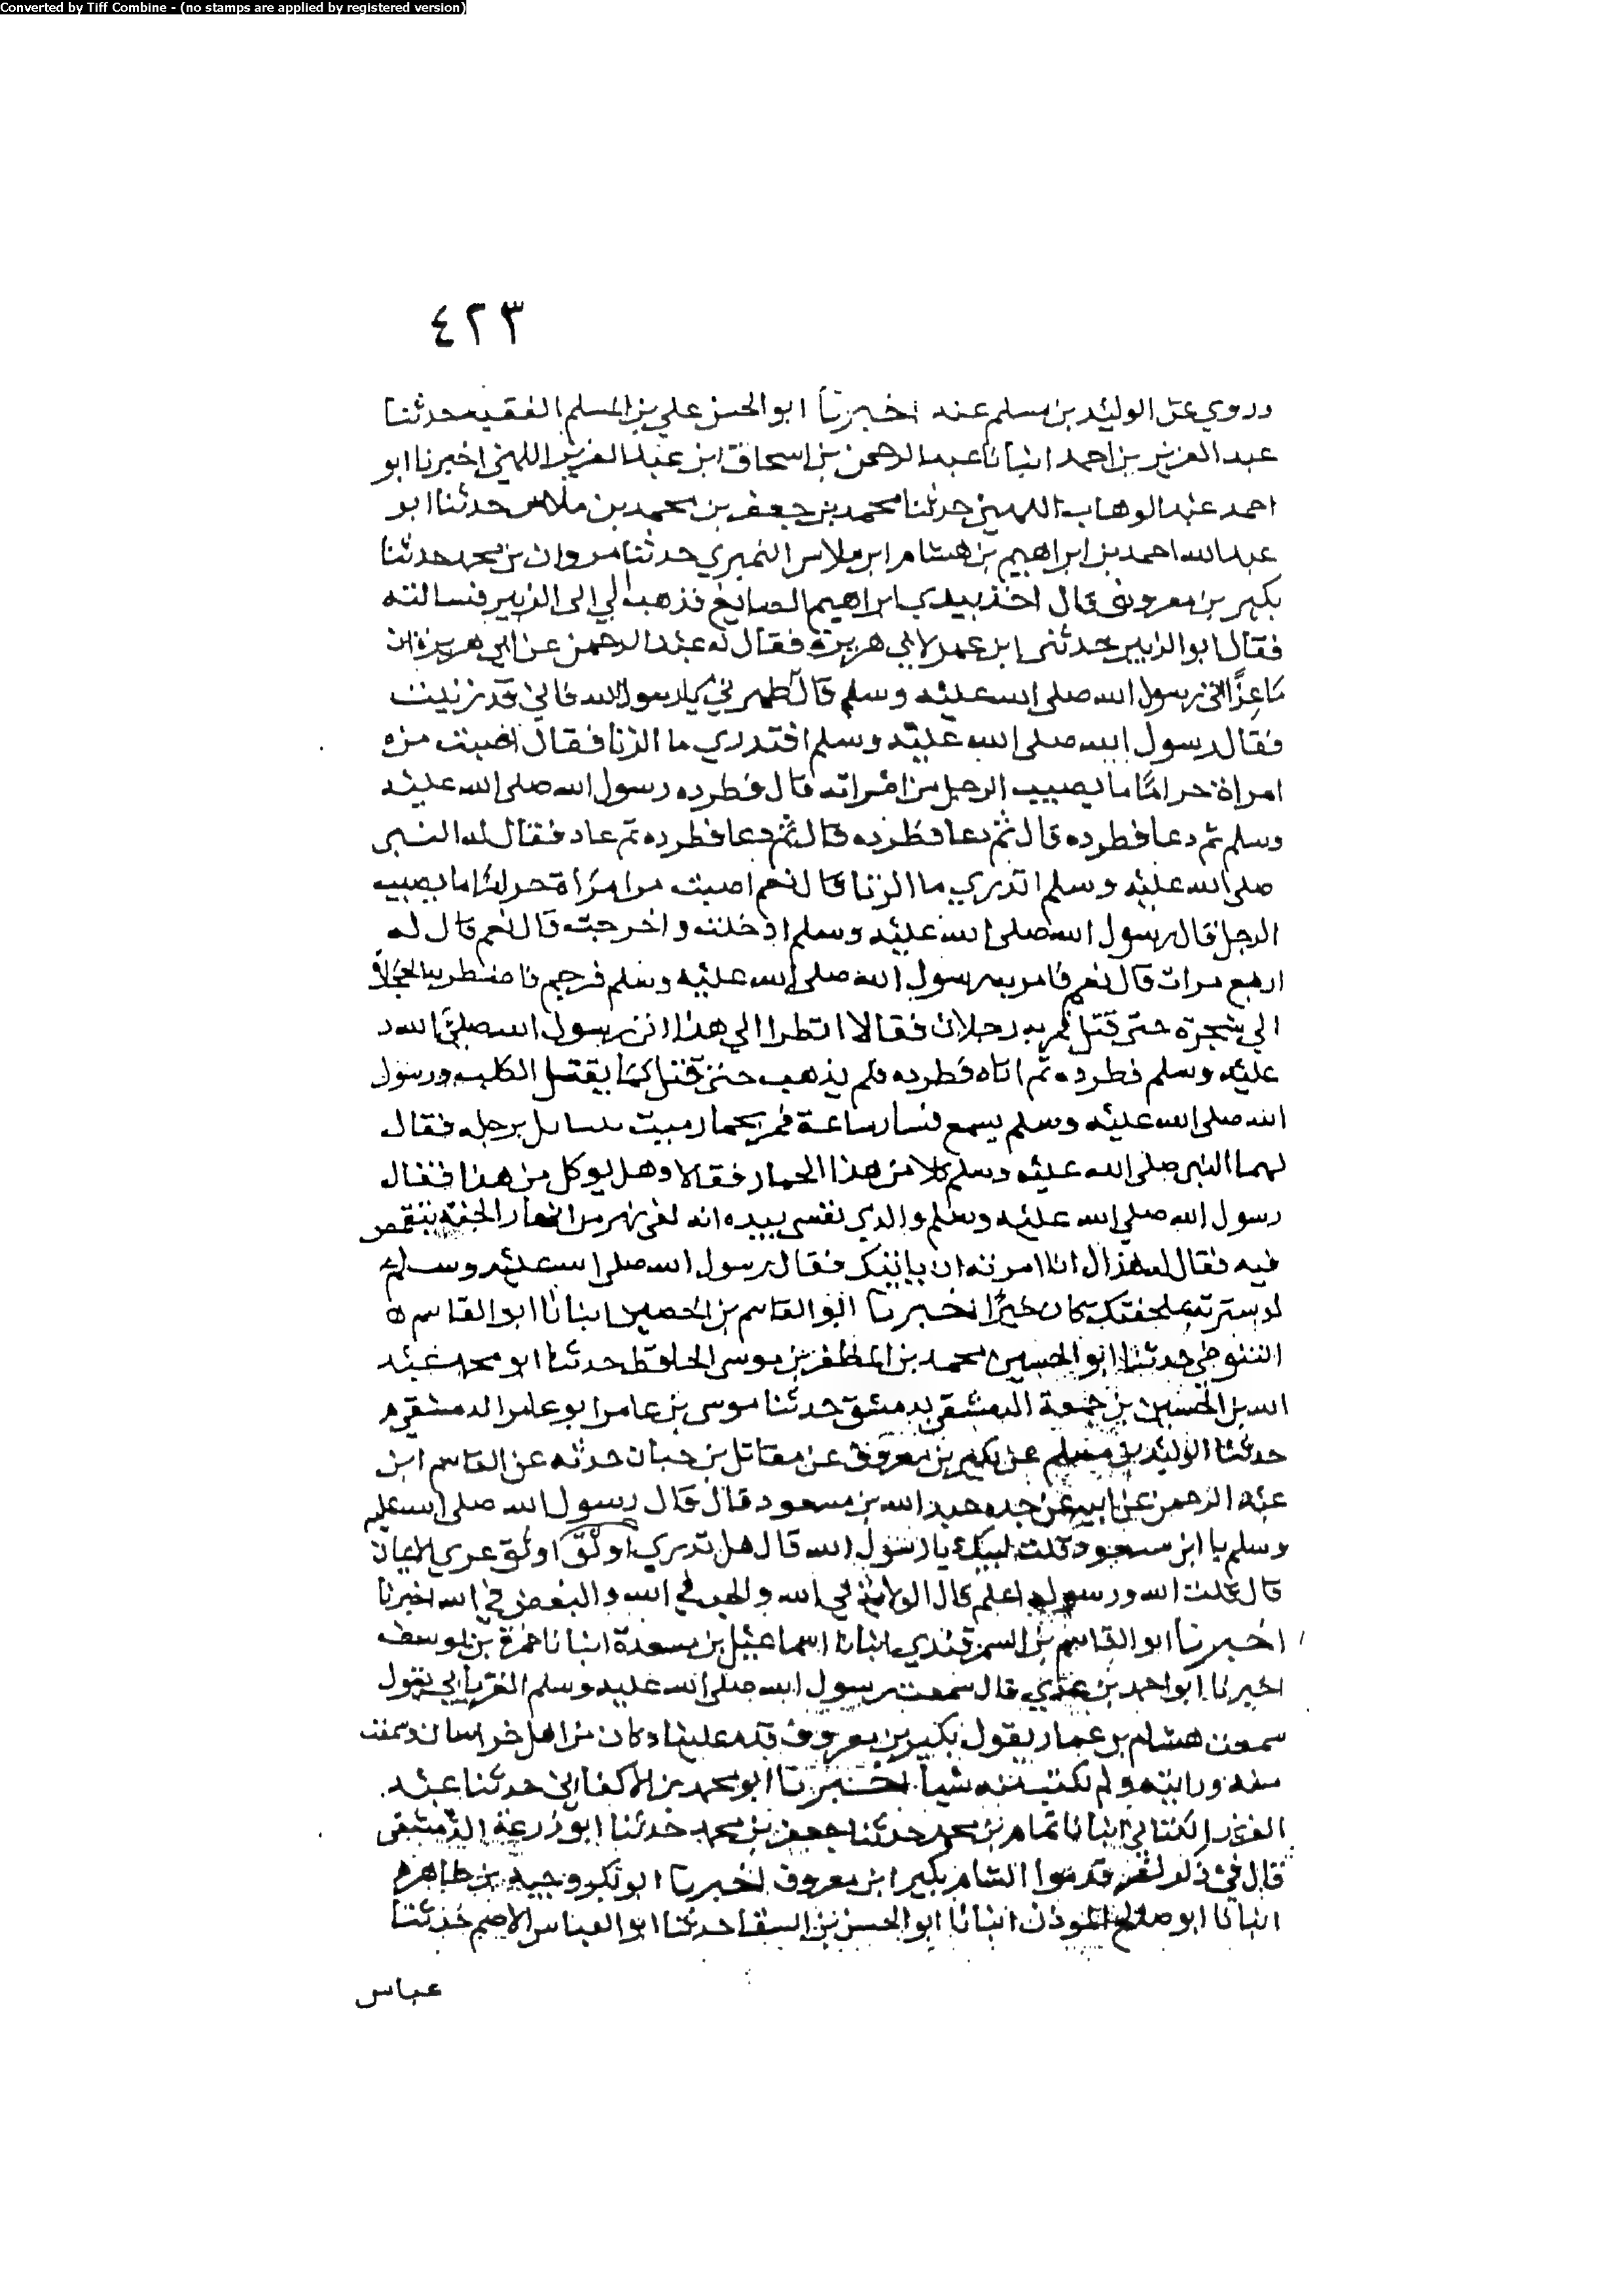 Converted by Tiff Combine - (no stamps are applied by registered version)
٤٢٣
وروي عن الوليد بن مسلم عنه اخبرنا ابو الحسن علي بن المسلم الفقيه حدثنا
عبد العزيز بن احمد انبانا عبد الرحمن بن اسحاق ابن عبد العزيز اللهبي اخبرنا ابو
احمد عبد الوهاب اللهبي حدثنا محمد بن جعفر بن محمد بن ملاس حدثنا ابو
عبد الله احمد بن ابراهيم بن هشام ابن ملاس النميري حدثنا مروان بن محمد حدثنا
بكير بن معروف قال اخذ بيدي ابراهيم الصايغ فذهب بي الى الزبير فسالته
فقال ابو الزبير حدثني ابن عم لابي هريرة فقال له عبد الرحمن عن ابي هريرة ان
ماعزًا اتى رسول الله صلى الله عليه وسلم قال طهرني يا رسول الله فاني قد زنيت
فقال رسول الله صلى الله عليه وسلم افتدري ما الزنا فقال اصبت من
امراة حرامًا ما يصيب الرجل من امراته قال فطرده رسول الله صلى الله عليه
وسلم ثم دعا فطرده قال ثم دعا فطرده قال ثم دعا فطرده ثم عاد فقال له النبي
صلى الله عليه وسلم اتدري ما الزنا قال نعم اصبت من امراة حراما ما يصيب
الرجل قال رسول الله صلى الله عليه وسلم ادخلت واخرجت قال نعم قال له
اربع مرات قال نعم فامر به رسول الله صلى الله عليه وسلم فرجم فاضطر به
الي شجرة حتى قتل فمر به رجلان فقالا انظرا الي هذا اتى رسول الله صلى الله
عليه وسلم فطرده ثم اتاه فطرده فلم يذهب حتى قتل كما يقتل الكلب ورسول
الله صلى الله عليه وسلم يسمع فسار ساعة فمر بحمار ميت برجله فقال
لهما النبي صلى الله عليه وسلم كلا من هذا الحمار فقالا وهل يوكل من هذا فقال
رسول الله صلى الله عليه وسلم والذي نفسي بيده انه لفي نهر من انهار الجنة ينقمص
فيه فقال له هزال انا امرته ان ياتيك فقال رسول الله صلى الله عليه وسلم
لو سترته بملحفتك كان خيرًا اخبرنا ابو القاسم بن الحصين انبانا ابو القاسم
التنوخي حدثنا ابو الحسين محمد بن المظفر بن موسى الحافظ حدثنا ابو محمد عبد
الله بن الحسين بن جمعة الدمشقي بدمشق حدثنا موسى بن عامر ابو عامر الدمشقي
حدثنا الوليد بن مسلم عن بكير بن معروف عن مقاتل بن حبان حدثه عن القاسم ابن
عبد الرحمن عن ابيه عن جده عبد الله بن مسعود قال قال رسول الله صلى الله عليه
وسلم يا ابن مسعود قلت لبيك يا رسول الله قال هل تدري اوثق اوثق عرى الايمان
قال قلت الله ورسوله اعلم قال الولاية في الله والحب في الله والبغض في الله اخبرنا
اخبرنا ابو القاسم بن السمرقندي انبانا اسماعيل بن مسعدة انبانا حمزة بن يوسف
اخبرنا ابو احمد بن عدي قال سمعت رسول الله صلى الله عليه وسلم الفريابي يقول
سمعت هشام بن عمار يقول بكير بن معروف قدم علينا وكان من اهل خراسان سمعت
منه ورايته ولم نكتب عنه شيا اخبرنا ابو محمد بن الاكفاني حدثنا عبد
العزيز الكتاني انبانا تمام بن محمد حدثنا جعفر بن محمد حدثنا ابو زرعة الدمشقي
قال في ذكر نفر قدموا الشام بكير ابن معروف اخبرنا ابو بكر وجيه بن طاهر
انبانا ابو صالح الموذن انبانا ابو الحسن بن السقا حدثنا ابو العباس الاصم حدثنا
عباس